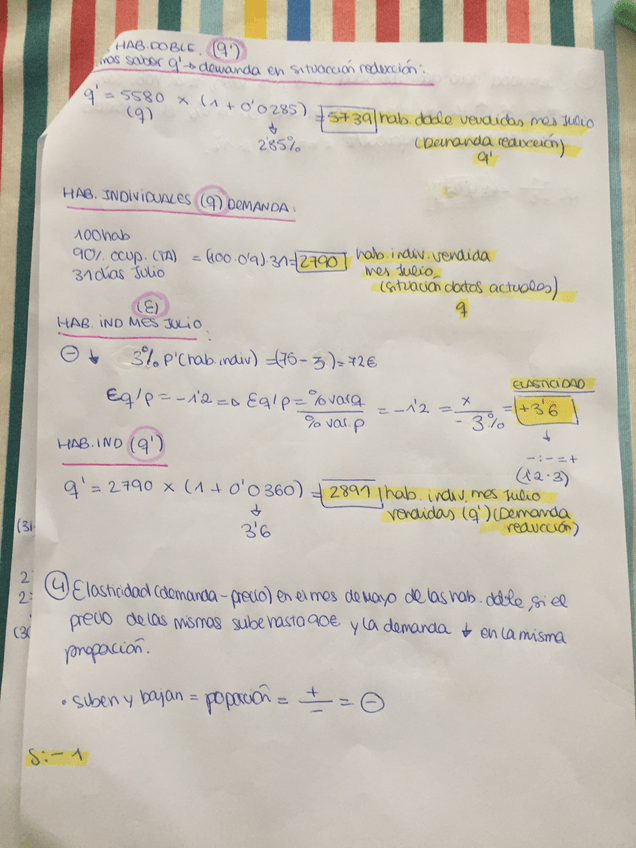 HAB.DOBLE. (q')
mos saber q' → demanda en situacción reducción:
q' = 5580 × (1 + 0'0285) = 5739 hab. doble vendidas mes Julio
(q) ↓ (Demanda reducción)
2'85% q'
HAB. INDIVIDUALES (q) DEMANDA.
100 hab
90% ocup. (TA) = (100·0'9)·31 = 2790 hab. indiv. vendida
31 días Julio mes Julio.
(situación datos actuales)
q
(E)
HAB. IND MES JULIO:
⊖ ↓ 3% P'(hab. indiv) = (75 - 3) = 72€
ELASTICIDAD
Eq/p = -1'2 => Eq/p = % var q / % var. p = -1'2 = x / -3% = +3'6
↓
- : - = +
(1'2·3)
HAB. IND (q')
q' = 2790 × (1 + 0'0360) = 2891 hab. indiv. mes Julio
↓ vendidas (q') (Demanda
3'6 reducción)
(31
2
2:
(30
④ Elasticidad (demanda-precio) en el mes de mayo de las hab. doble, si el
precio de las mismas sube hasta 90€ y la demanda ↓ en la misma
proporción.
• suben y bajan = poporción = + / - = ⊖
S: -1